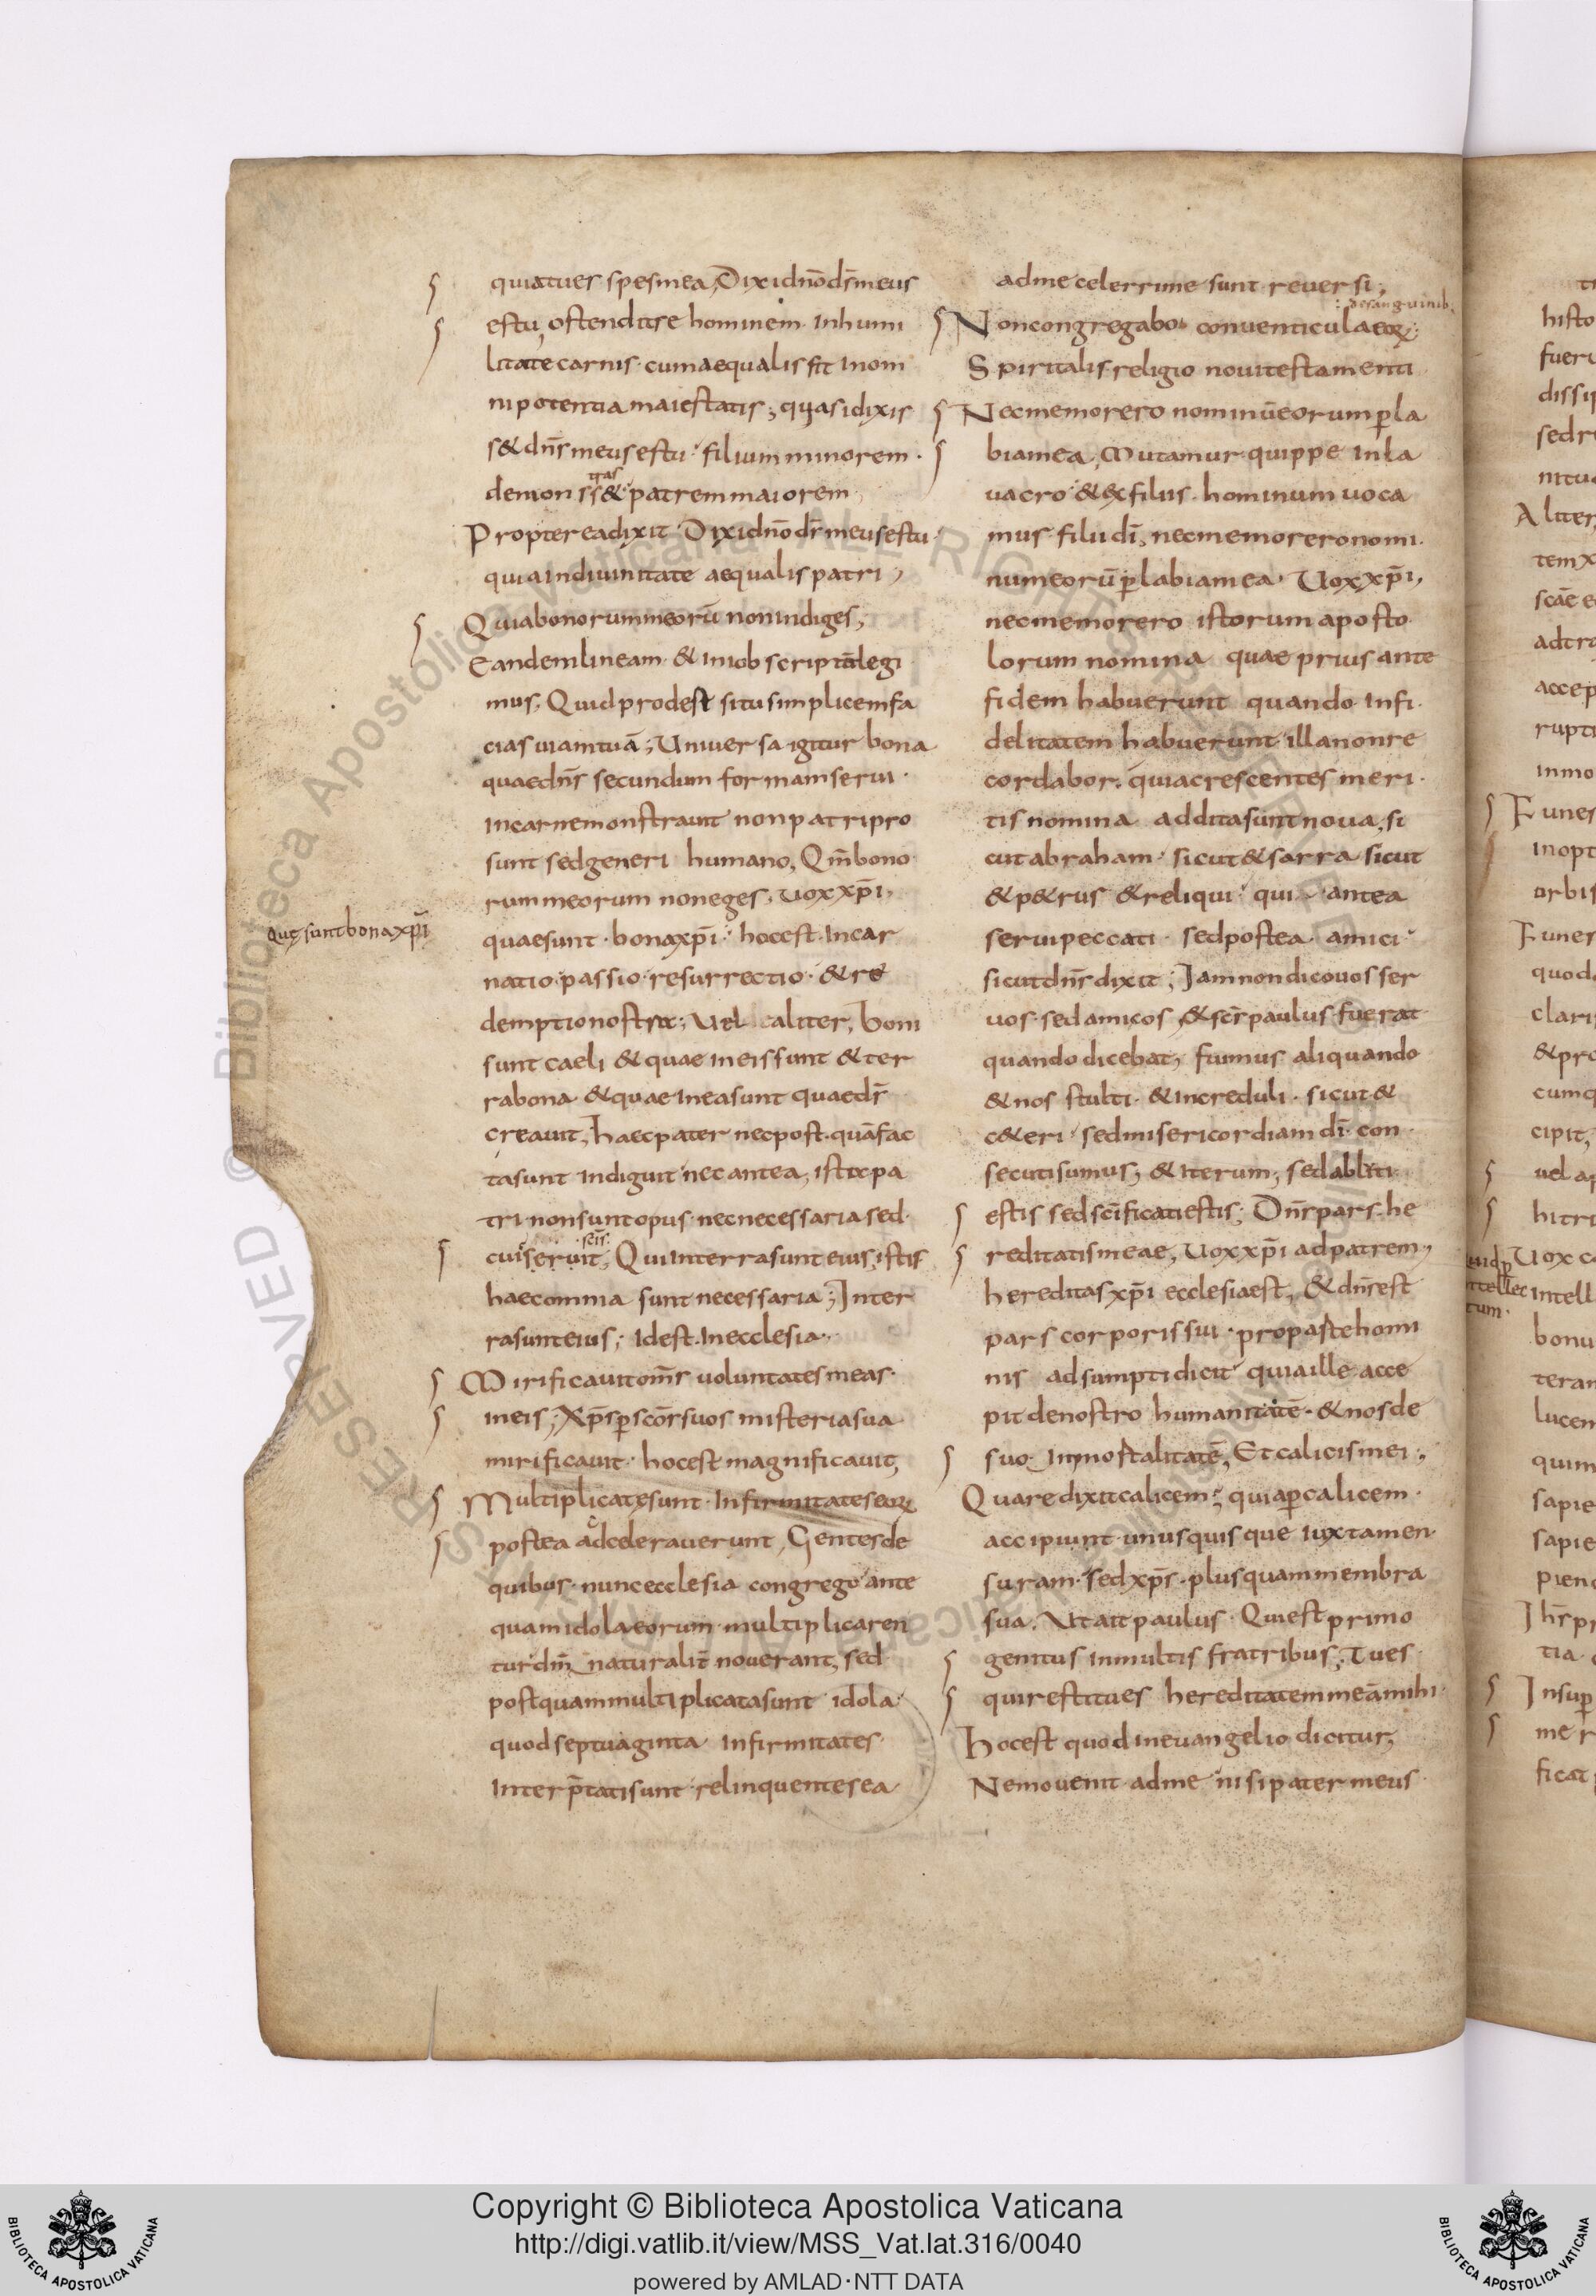 quiatues spesmea, Dixi dnō ds̄ meus
estu, ostenditse hominem Inhumi
litate carnis cumaequalis sit Inom
nipotentia maiestatis; quasidixis
s& dn̄s meus estu filium minorem
tras
demonss& patrem maiorem,
Propterea dixit Dixi dnō ds̄ meus estu
quia Indiuinitate aequalis patri,
Quiabonorum meorū non indiges;
Eandem lineam & in iob scriptā legi
mus; Quid prodest situ simplicem fa
cias uiam tuā; Uniuersa igitur bona
quae dn̄s secundum formam serui
Incarne monstrauit non patri pro
sunt sed generi humano, Qm̄ bono
rum meorum non eges, Uox xp̄i,
Quę sunt bona xp̄i
quae sunt bona xp̄i hoc est Incar
natio passio resurrectio & re
demptio nostra; Vel aliter, boni
sunt caeli & quae Ineis sunt & ter
ra bona & quae Inea sunt quae ds̄
creauit, haec pater nec post quā fac
ta sunt indiguit nec antea, ista pa
tri non sunt opus nec necessaria sed
scīs
cui seruit, Qui Interra sunt eius, istis
haec omnia sunt necessaria; Inter
ra sunt eius; Id est Inecclesia
Mirificauit om̄s uoluntates meas
ineis; Xp̄s p̄ scōs suos misteria sua
mirificauit hoc est magnificauit,
Multiplicatę sunt Infirmitates eoꝝ
postea adceleraverunt, Gentes de
quibus nunc ecclesia congrego ante
quam idola eorum multiplicaren
tur dm̄ naturalit̄ noverant, sed
postquam multiplicata sunt idola
quod septuaginta Infirmitates
Interp̄tati sunt relinquentes ea
ad me celerrime sunt reversi;
de sanguinib.
Non congregabo conventicula eoꝝ
Spiritalis religio noui testamenti
Nec memorero nominū eorum p̄ la
bia mea, Mutamur quippe Inla
uacro & ex filiis hominum uoca
mus filii dī, nec memorero nomi
num eorū p̄ labia mea Uox xp̄i,
nec memorero istorum aposto
lorum nomina quae prius ante
fidem habuerunt quando Infi
delitatem habuerunt illa non re
cordabor, quia crescentes meri
tis nomina addita sunt noua, si
cut abraham sicut & sarra sicut
& p&rus & reliqui qui antea
serui peccati sed postea amici
sicut dn̄s dixit; Iam non dico uos ser
uos sed amicos, & scs̄ paulus fuerat
quando dicebat, fuimus aliquando
& nos stulti & increduli sicut &
c&eri sed misericordiam dī con
secuti sumus; & iterum, sed abluti
estis sed scīficati estis; Dn̄s pars he
reditatis meae, Uox xp̄i ad patrem,
hereditas xp̄i ecclesia est, & dn̄s est
pars corporis sui pro parte homi
nis adsumpti dicit quia ille acce
pit de nostro humanitatē & nos de
suo Inmortalitatē, Et calicis mei,
Quare dixit calicem; quia p̄ calicem
accipiunt unusquisque iuxta men
suram sed xp̄s plus quam membra
sua, Ut ait paulus Qui est primo
genitus in multis fratribus; Tu es
qui restitues hereditatem meā mihi
Hoc est quod in euangelio dicitur,
Nemo uenit ad me nisi pater meus
Copyright © Biblioteca Apostolica Vaticana
http://digi.vatlib.it/view/MSS_Vat.lat.316/0040
powered by AMLAD·NTT DATA